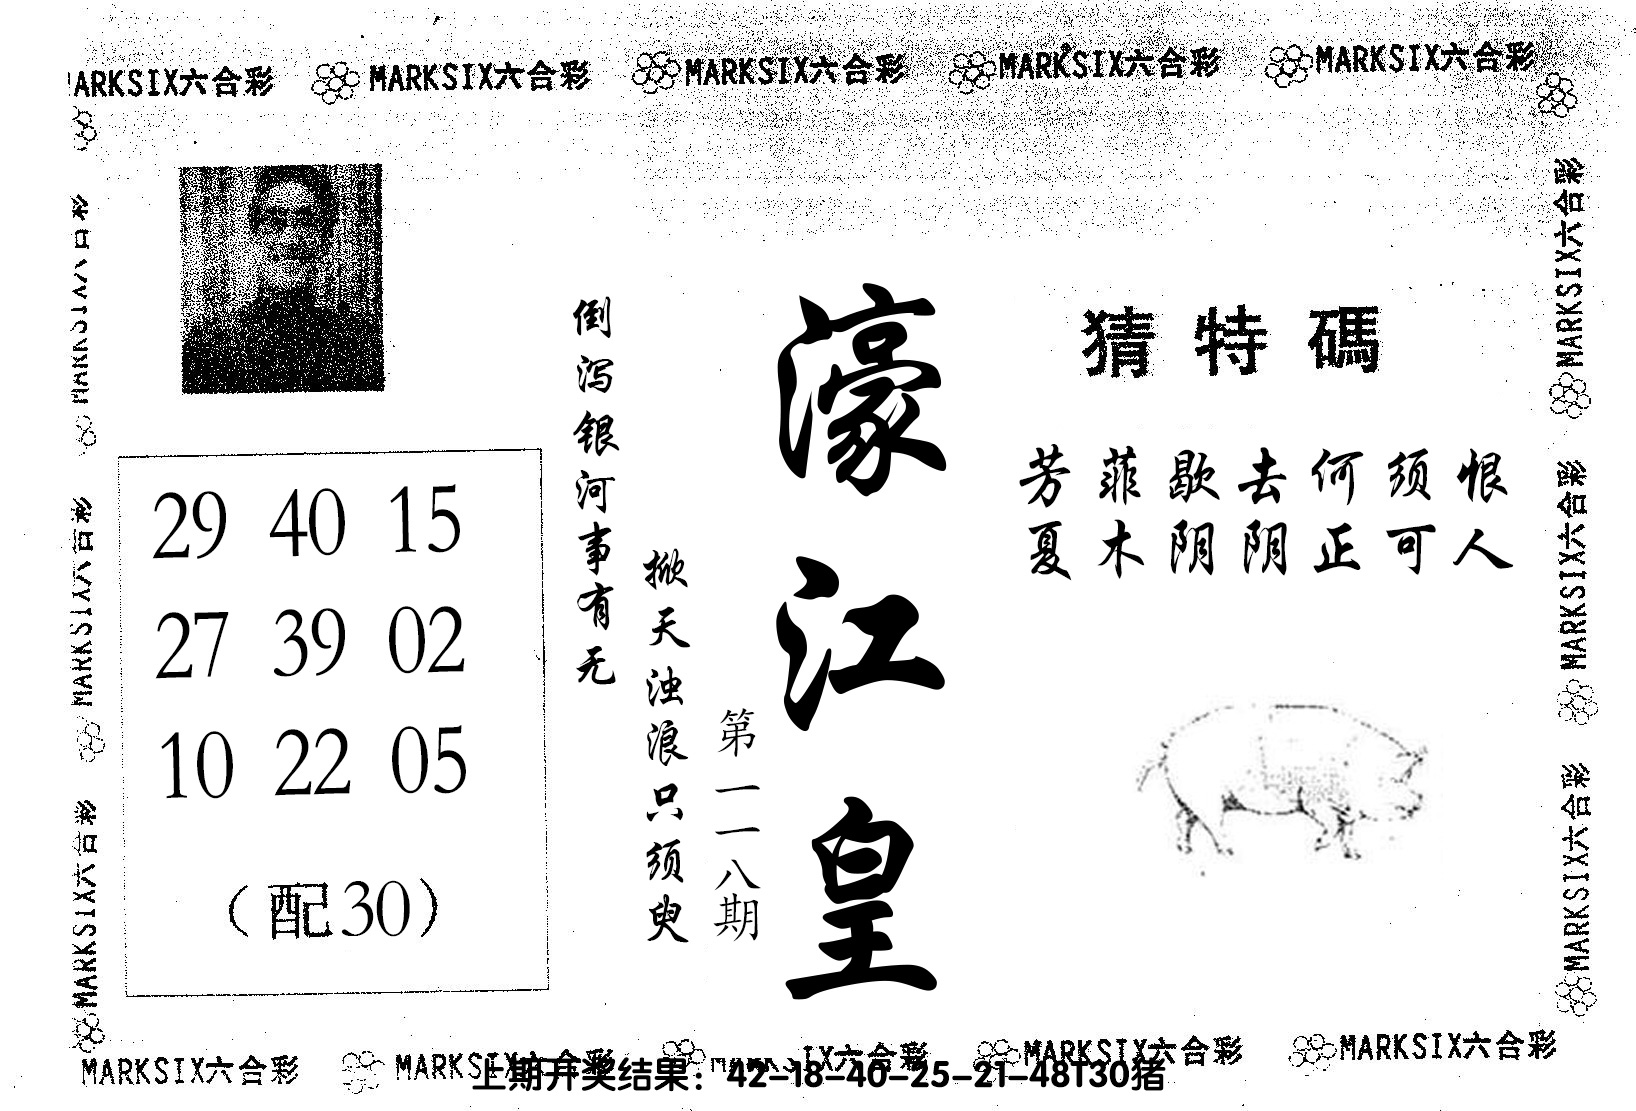 MARKSIX六合彩 MARKSIX六合彩 MARKSIX六合彩 MARKSIX六合彩 MARKSIX六合彩
猜特碼
芳菲歇去何须恨
夏木阴阴正可人
濠江皇
第一一八期
掀天浊浪只须臾
倒泻银河事有无
29 40 15
27 39 02
10 22 05
(配30)
MARKSIX六合彩
MARKSIX六合彩
MARKSIX六合彩
MARKSIX六合彩
MARKSIX六合彩
MARKSIX六合彩
MARKSIX六合彩 MARKSIX六合彩 MARKSIX六合彩 MARKSIX六合彩 MARKSIX六合彩
上期开奖结果：42-18-40-25-21-48T30猪